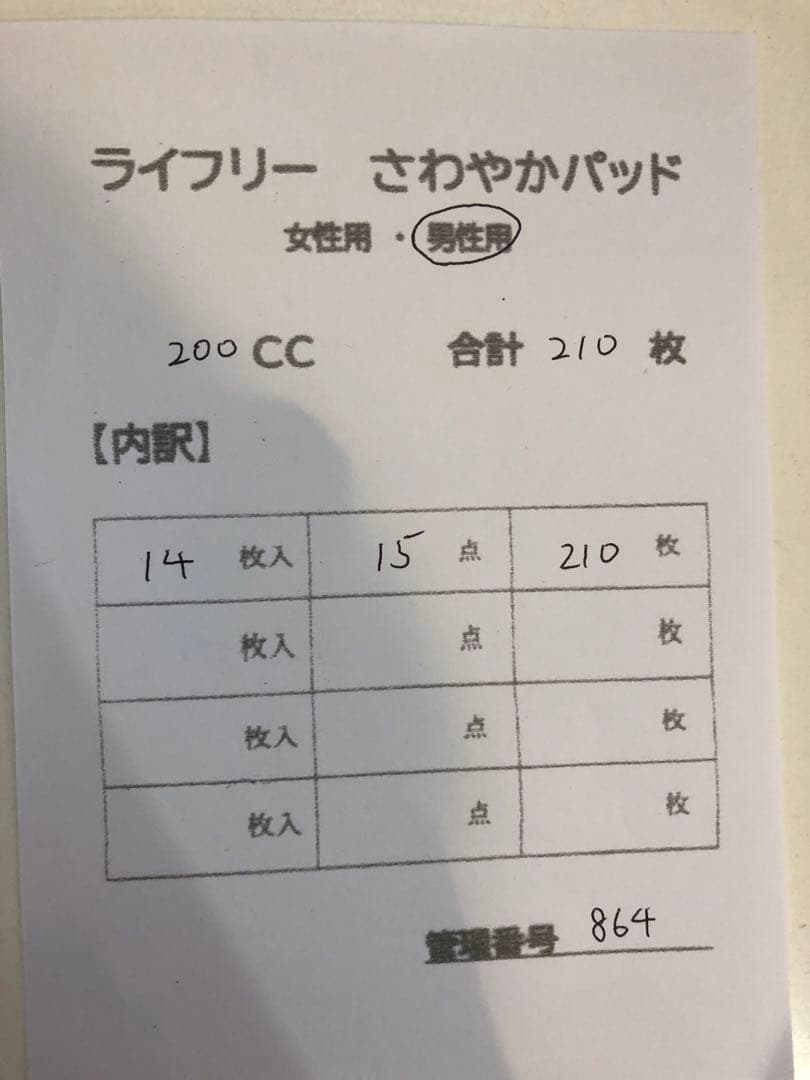 ライフリー さわやかパッド
女性用・男性用
200CC 合計 210 枚
【内訳】
14 枚入 15 点 210 枚
枚入 点 枚
枚入 点 枚
枚入 点 枚
管理番号 864